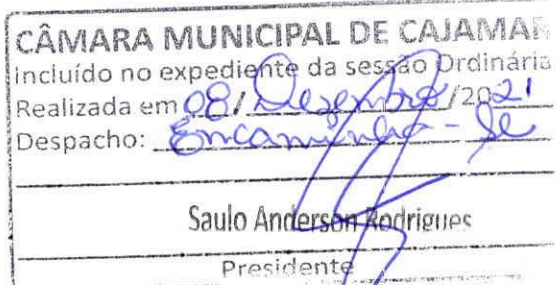 CÂMARA MUNICIPAL DE CAJAMAR
incluído no expediente da sessão Ordinária
Realizada em 08/Dezembro/2021
Despacho: Encaminha-se
Saulo Anderson Rodrigues
Presidente